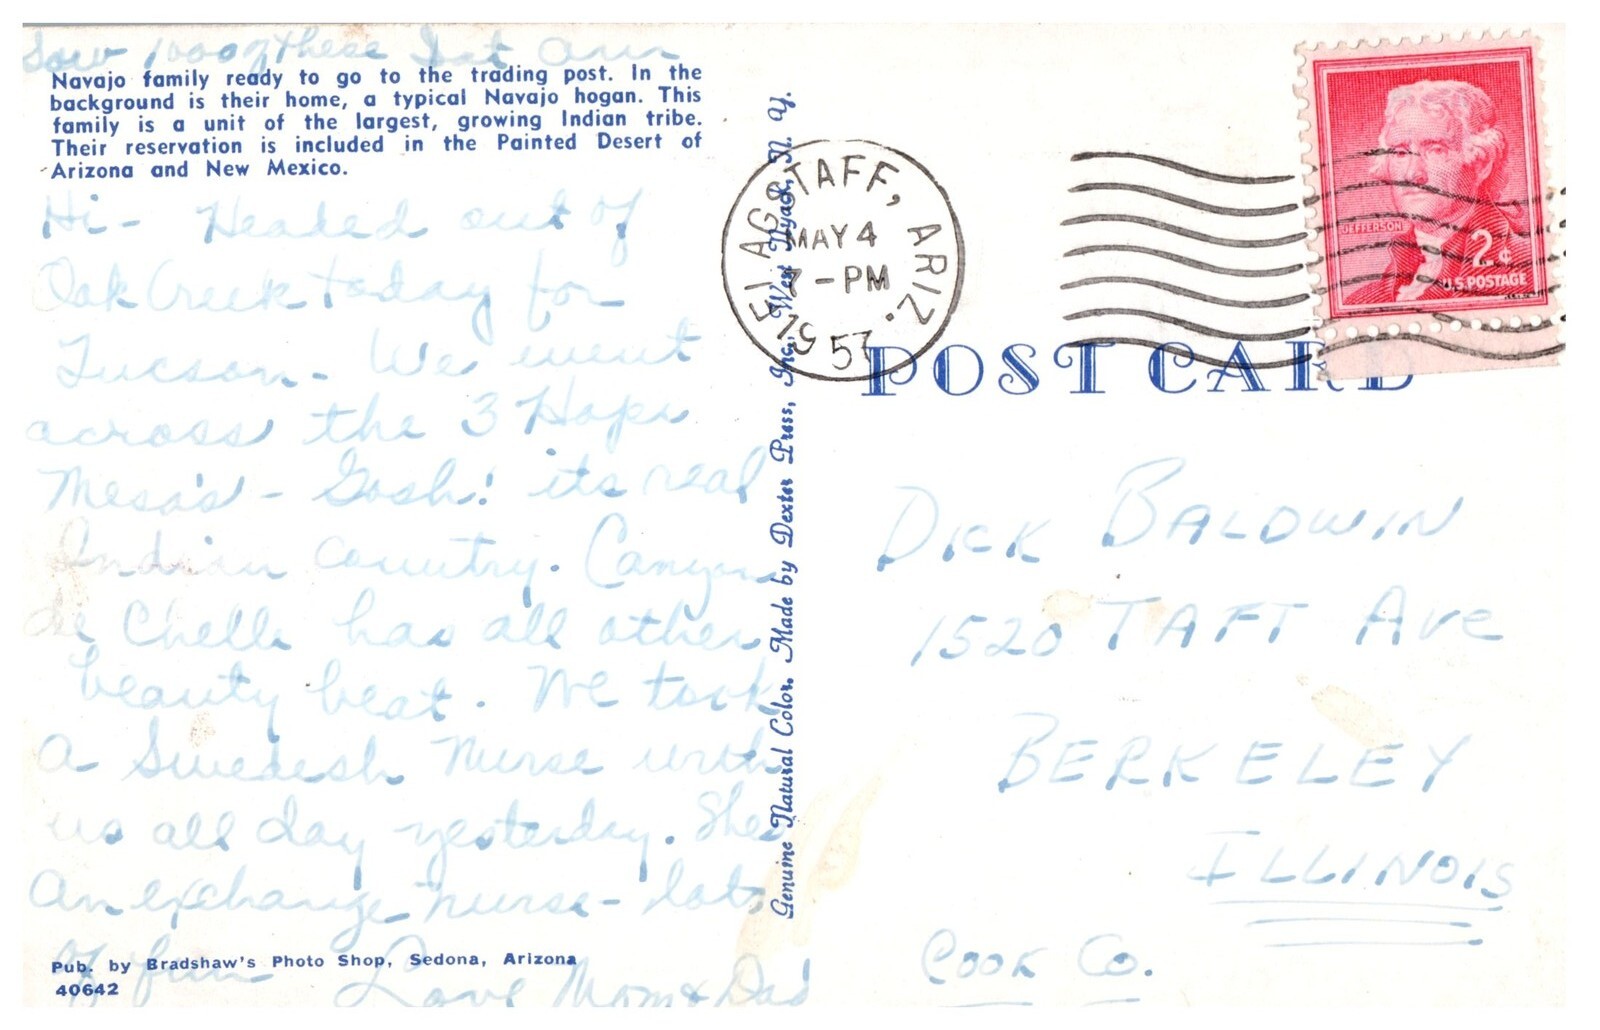 Saw 1000 of these
Navajo family ready to go to the trading post. In the
background is their home, a typical Navajo hogan. This
family is a unit of the largest, growing Indian tribe.
Their reservation is included in the Painted Desert of
Arizona and New Mexico.
Hi - Headed out of
Oak Creek today for
Tucson - We went
across the 3 Hopi
Mesa's - Gosh! its real
Indian country. Canyon
de Chelle has all other
beauty beat. We took
a Swedish Nurse with
us all day yesterday. Shes
an exchange nurse - lots
of fun Love Mom & Dad
Pub. by Bradshaw's Photo Shop, Sedona, Arizona
40642
Genuine Natural Color. Made by Dexter Press, Inc., West Nyack, N. Y.
FLAGSTAFF, ARIZ.
MAY 4
7 - PM
1957
JEFFERSON
2¢
U.S. POSTAGE
POST CARD
DICK BALDWIN
1520 TAFT AVE
BERKELEY
ILLINOIS
COOK CO.